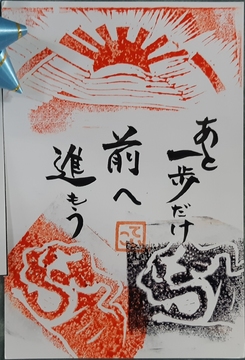 あと
一歩だけ
前へ
進もう